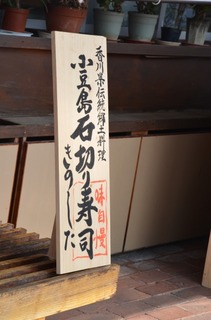 香川県伝統郷土料理
小豆島石切り寿司
きのした
味自慢